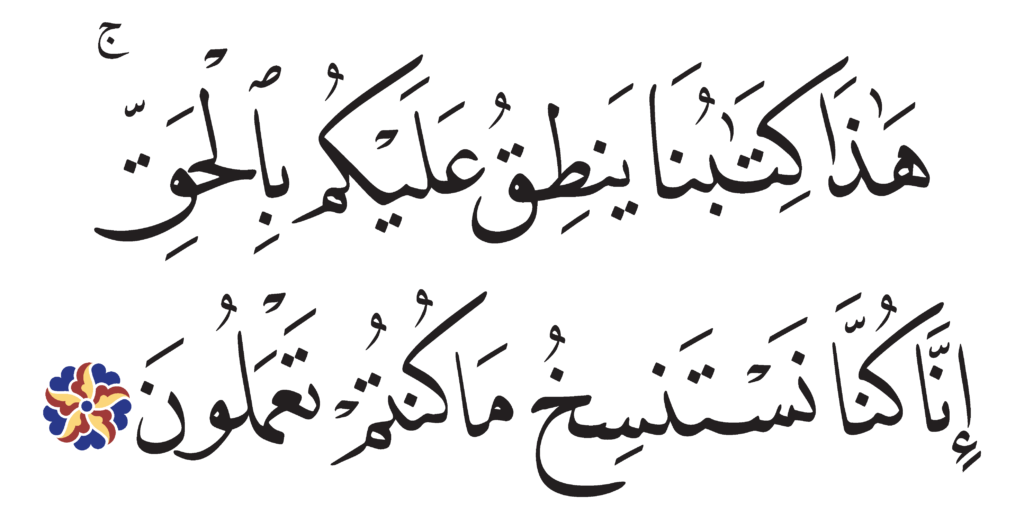 هَٰذَا كِتَٰبُنَا يَنطِقُ عَلَيْكُم بِٱلْحَقِّ ۚ
إِنَّا كُنَّا نَسْتَنسِخُ مَا كُنتُمْ تَعْمَلُونَ